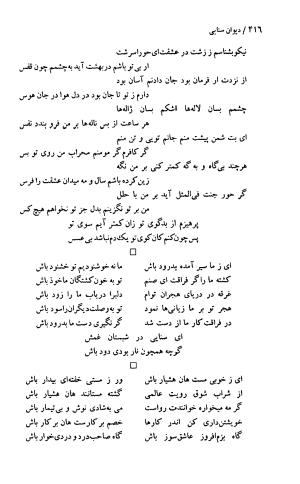 ۴۱۶ / دیوان سنایی
نیکو بشناسم ز زشت در عشقت ای حورا سرشت
ار بی تو باشم در بهشت آید به چشمم چون قفس
از نزدت ار فرمان بود جان دادنم آسان بود
دارم ز تو تا جان بود در دل هوا در جان هوس
چشمم بسان لاله‌ها اشکم بسان ژاله‌ها
هر ساعت از بس ناله‌ها بر من فرو بندد نفس
ای بت شمن پیشت منم جانم تویی و تن منم
گر کافرم گر مومنم محراب من روی تو بس
هرچند بی‌گاه و به گه کمتر کنی بر من نگه
زین کرده باشم سال و مه میدان عشقت را فرس
گر حور جنت فی‌المثل آید بر من با حلل
من بر تو نگزینم بدل جز تو نخواهم هیچ کس
پرهیزم از بدگوی تو زان کمتر آیم سوی تو
پس چون کنم کان کوی تو یک دم نباشد بی عسس
ای ز ما سیر آمده بدرود باش ما نه خوشنودیم تو خشنود باش
کشته ما را گر فراق ای صنم تو به خون کشتگان ماخوذ باش
غرقه در دریای هجران توام دلبرا دریاب ما را زود باش
هجر تو بر ما زیانی‌ها نمود تو به وصلت دیگران را سود باش
در فراقت کار ما از دست شد گر نگیری دست ما بدرود باش
ای سنایی در شبستان غمش
گوچه همچون نار بودی دود باش
ای ز خوبی مست هان هشیار باش ور ز مستی خفته‌ای بیدار باش
از شراب شوق رویت عالمی گشته مستانند هان هشیار باش
گر مه میخواره خوانندت رواست می به شادی نوش و بی تیمار باش
خویشتن‌داری کن اندر کارها خصم بر کارست هان بر کار باش
گاه بزم‌افروز عاشق‌سوز باش گاه صاحب‌درد و دردی‌خوار باش